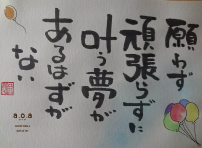 願わず
頑張らずに
叶う夢が
あるはずが
ない
a.o.a